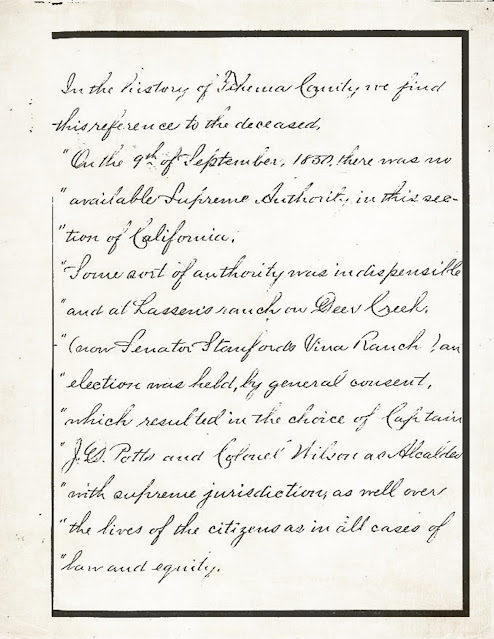 In the history of Tehema County we find
this reference to the deceased,
"On the 9th of September, 1850, there was no
" available Supreme Authority in this sec-
" tion of California.
"Some sort of authority was indispensible
" and at Lassen's ranch on Deer Creek,
" (now Senator Stanfords Vina Ranch) an
" election was held, by general consent,
" which resulted in the choice of Captain
" J.G. Potts and Colonel Wilson as Alcaldes
" with supreme jurisdiction, as well over
" the lives of the citizens as in all cases of
" law and equity.